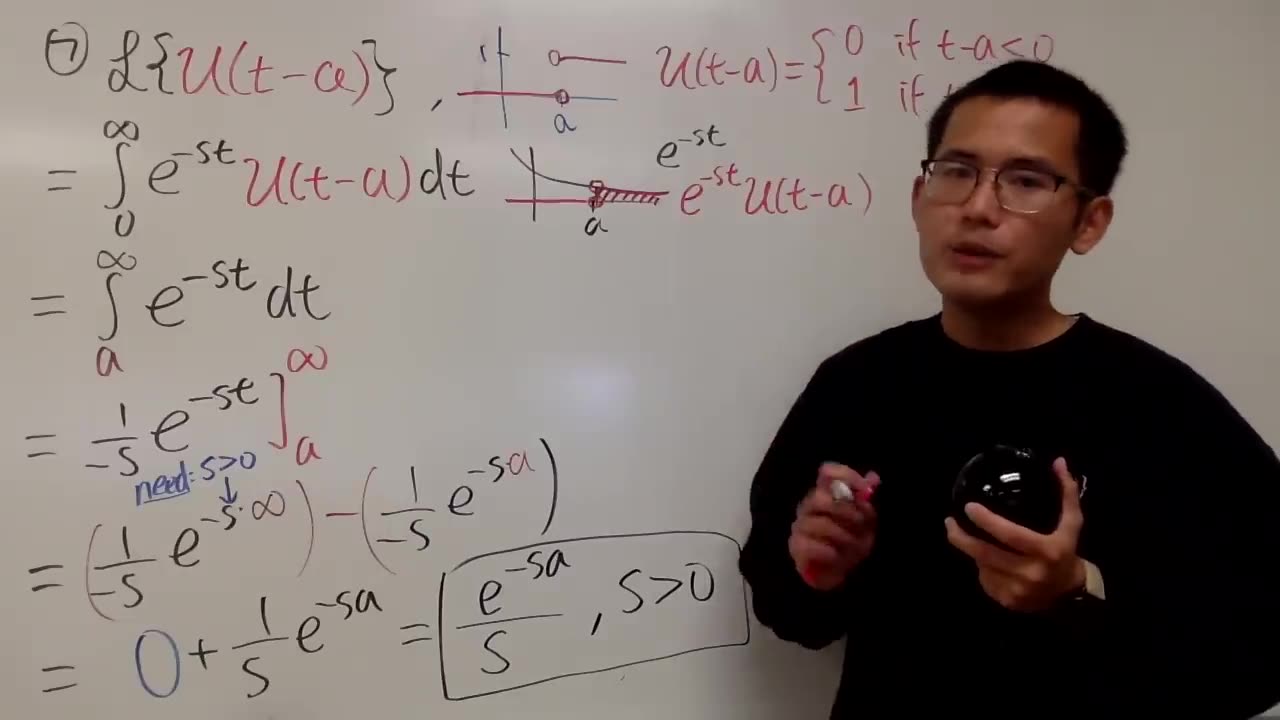 ⑦ ℒ{u(t-a)} , 1 a u(t-a) = { 0 if t-a<0
1 if
= ∫₀^∞ e^{-st} u(t-a) dt a e^{-st} e^{-st} u(t-a)
= ∫ₐ^∞ e^{-st} dt
= 1/-s e^{-st} ]ₐ^∞
need: s>0
= (1/-s e^{-s·∞}) - (1/-s e^{-sa})
= 0 + 1/s e^{-sa} = e^{-sa}/s , s>0